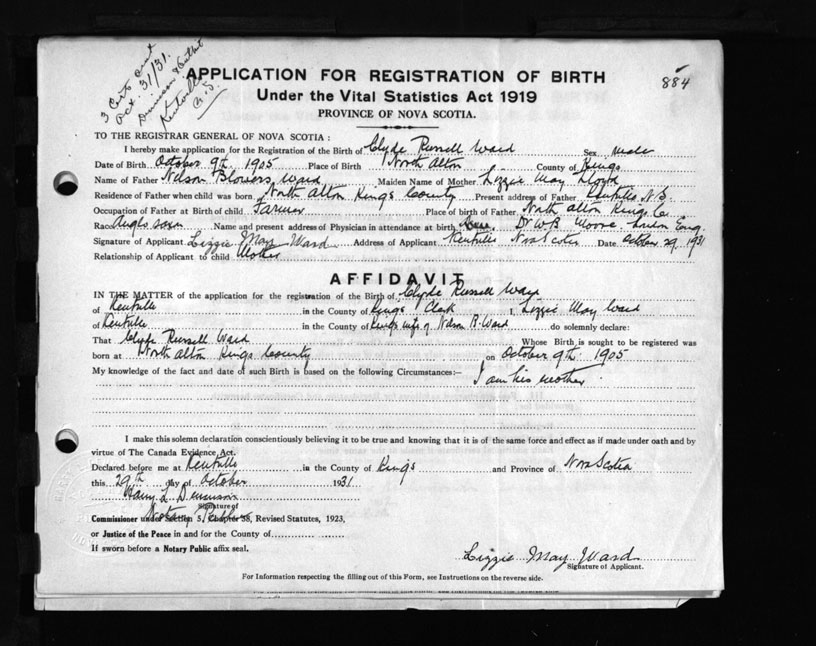 884
3 Certs sent
Oct. 31/31.
Kentville
N.S.
APPLICATION FOR REGISTRATION OF BIRTH
Under the Vital Statistics Act 1919
PROVINCE OF NOVA SCOTIA.
TO THE REGISTRAR GENERAL OF NOVA SCOTIA :
I hereby make application for the Registration of the Birth of Clyde Russell Ward Sex male
Date of Birth October 9th 1905 Place of Birth North Alton County of Kings
Name of Father Nelson Blowers Ward Maiden Name of Mother Lizzie May Lloyd
Residence of Father when child was born North Alton Kings County Present address of Father Kentville N.S.
Occupation of Father at Birth of child Farmer Place of birth of Father North Alton Kings Co.
Race Anglo Saxon Name and present address of Physician in attendance at birth Dr W.B. Moore Eng.
Signature of Applicant Lizzie May Ward Address of Applicant Kentville Nova Scotia Date October 29, 1931
Relationship of Applicant to child Mother
AFFIDAVIT
IN THE MATTER of the application for the registration of the Birth of Clyde Russell Ward
of Kentville in the County of Kings I, Lizzie May Ward
of Kentville in the County of Kings wife of Nelson B. Ward do solemnly declare:
That Clyde Russell Ward Whose Birth is sought to be registered was
born at North Alton Kings County on October 9th 1905
My knowledge of the fact and date of such Birth is based on the following Circumstances:— I am his mother.
I make this solemn declaration conscientiously believing it to be true and knowing that it is of the same force and effect as if made under oath and by
virtue of The Canada Evidence Act.
Declared before me at Kentville in the County of Kings and Province of Nova Scotia
this 29th day of October 1931
Signature of
Notary Public
Commissioner under Section 5, Chapter 38, Revised Statutes, 1923,
or Justice of the Peace in and for the County of
If sworn before a Notary Public affix seal.
Lizzie May Ward
Signature of Applicant.
For Information respecting the filling out of this Form, see Instructions on the reverse side.